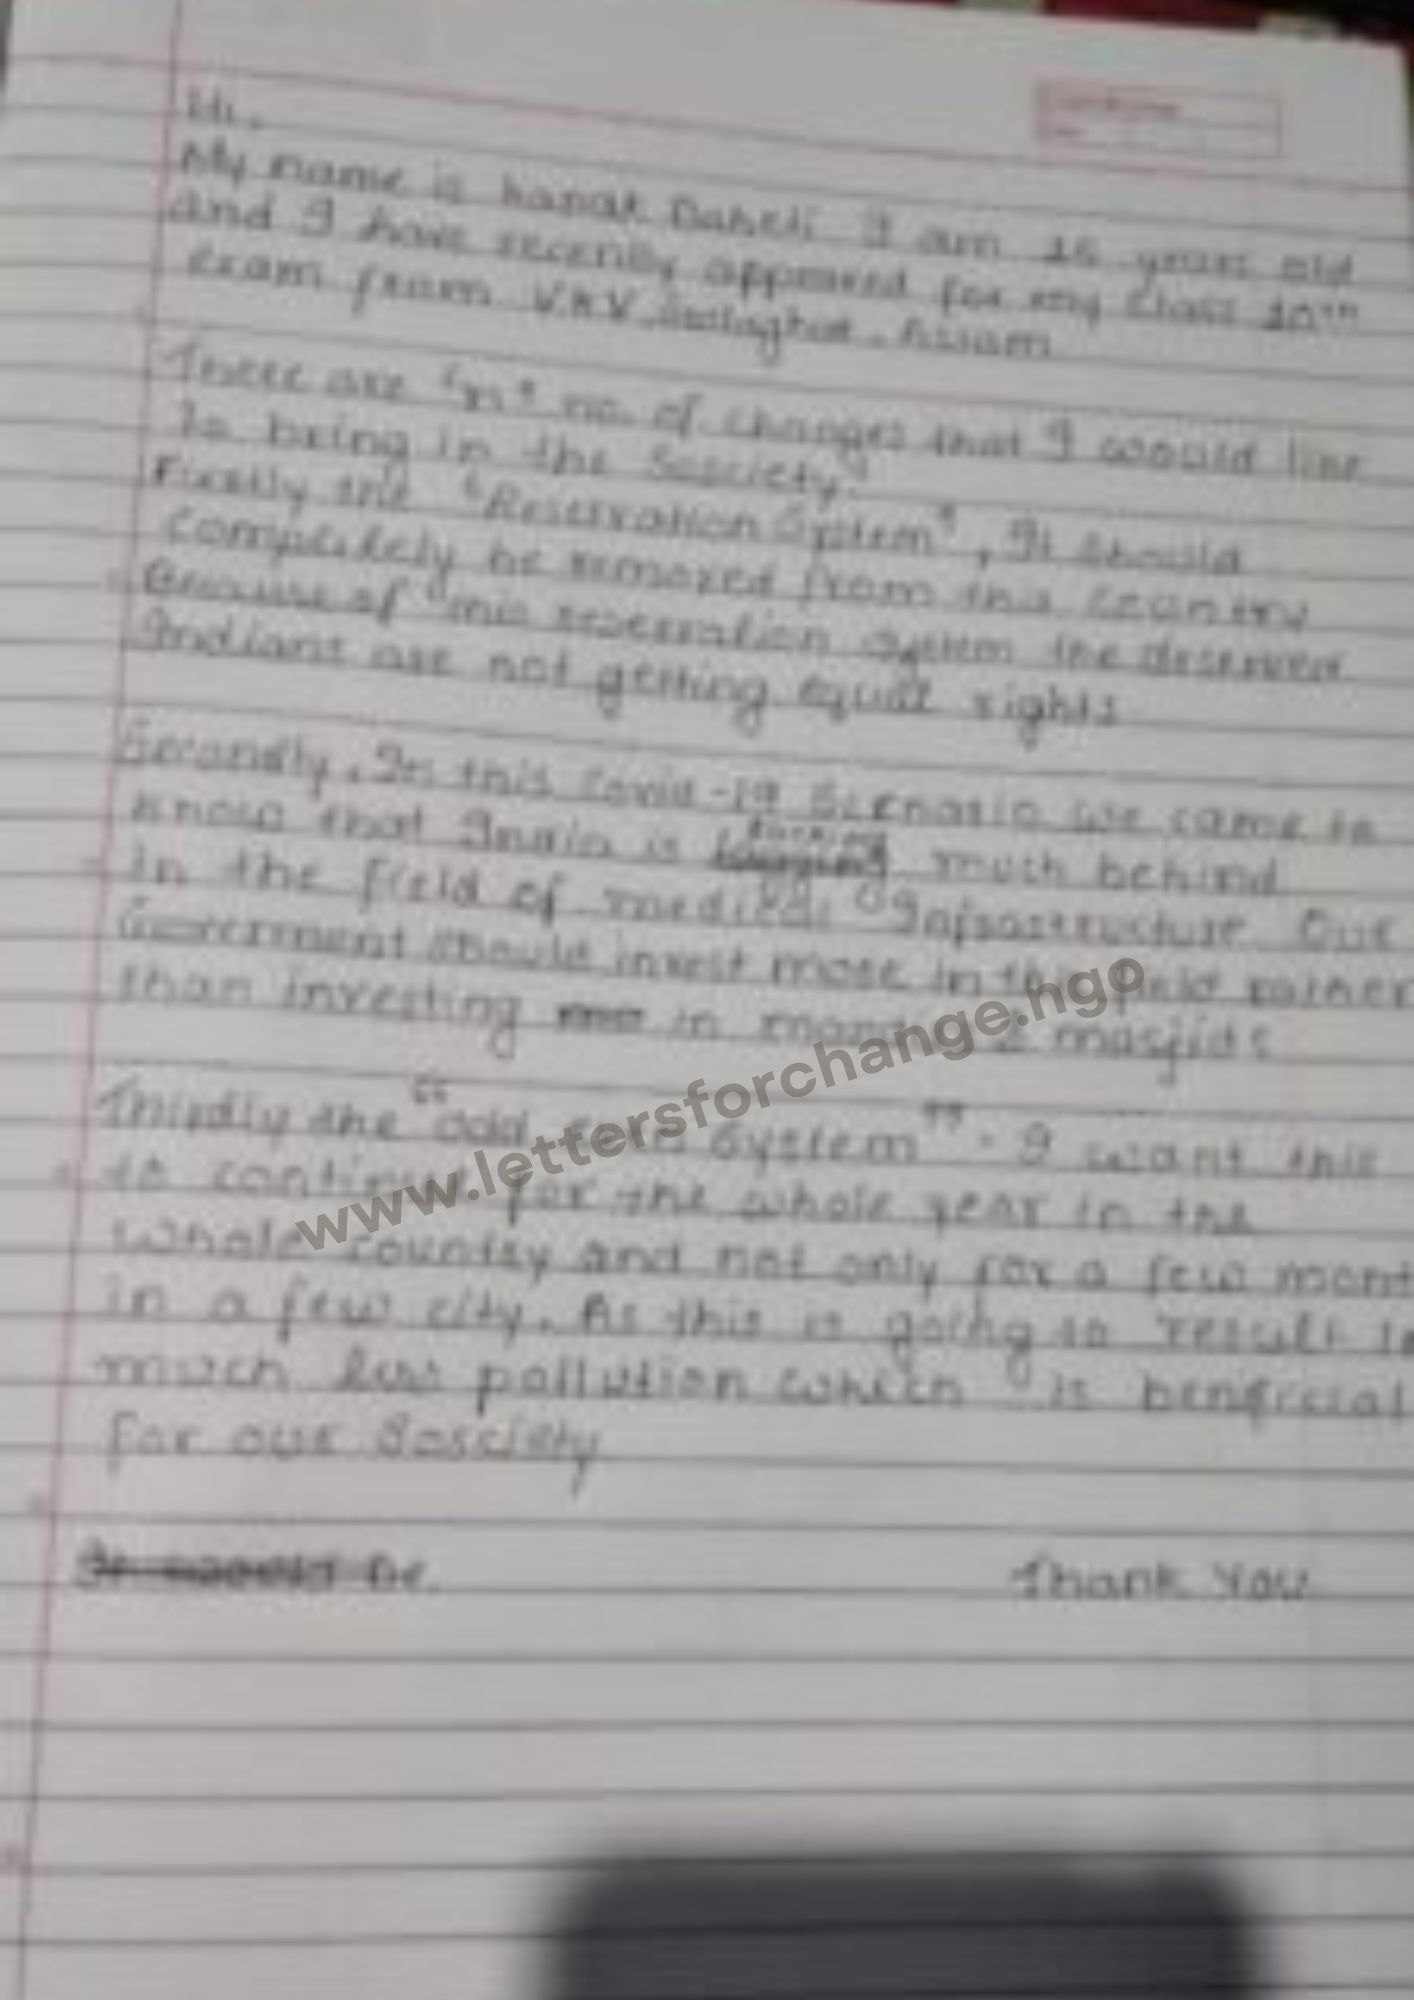 Hi,
My name is Kanak I am 16 years old
and I have recently appeared for my Class 10th
exam from V.K.V. Assam
There are "n" no. of changes that I would like
to bring in the Sosciety.
Firstly the "Reservation System", It should
Completely be removed from this Country
Because of this reservation system the deserved
Indians are not getting equal rights
Secondly, In this Covid-19 Scenario we came to
know that India is lacking much behind
in the field of medical Infrastructure. Our
Government should invest more in this field rather
than investing in & masjids
Thirdly the "odd System". I want this
to continue for the whole year in the
whole country and not only for a few mont
in a few city. As this is going to result in
much less pollution which is benificial
for our Sosciety
Thank You
www.lettersforchange.ngo